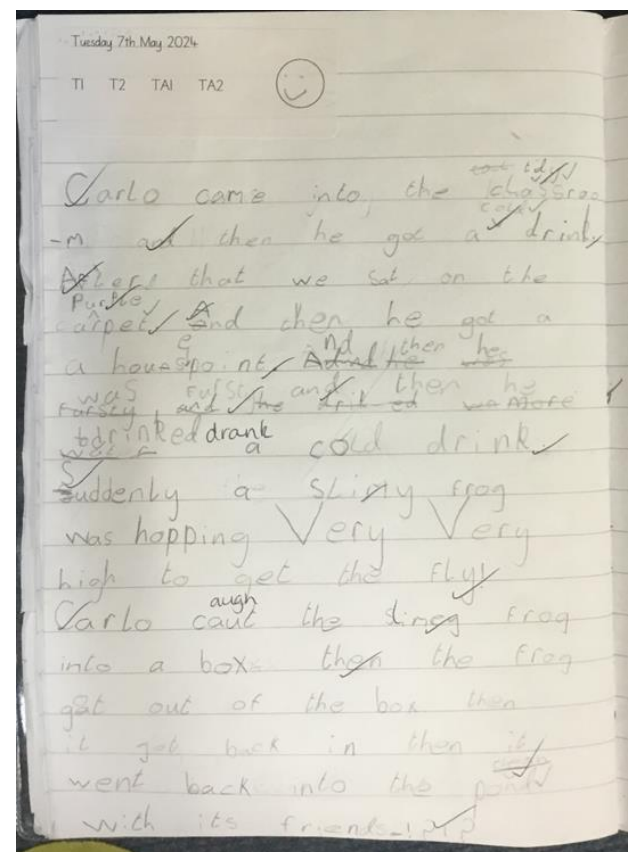 Tuesday 7th May 2024
T1 T2 TA1 TA2
tidy
Carlo came into the classroo
cold
-m and then he got a drink
Afters that we sat on the
Purple
carpet And then he got a
a housepoint And then he
was fursty and then he
fursty and the drik ed
drinked drank a cold drink
Suddenly a slimy frog
was hopping Very Very
high to get the fly!
augh
Carlo caut the slimey frog
into a box then the frog
got out of the box then
it got back in then it
went back into the pond
with its friends-!?!?